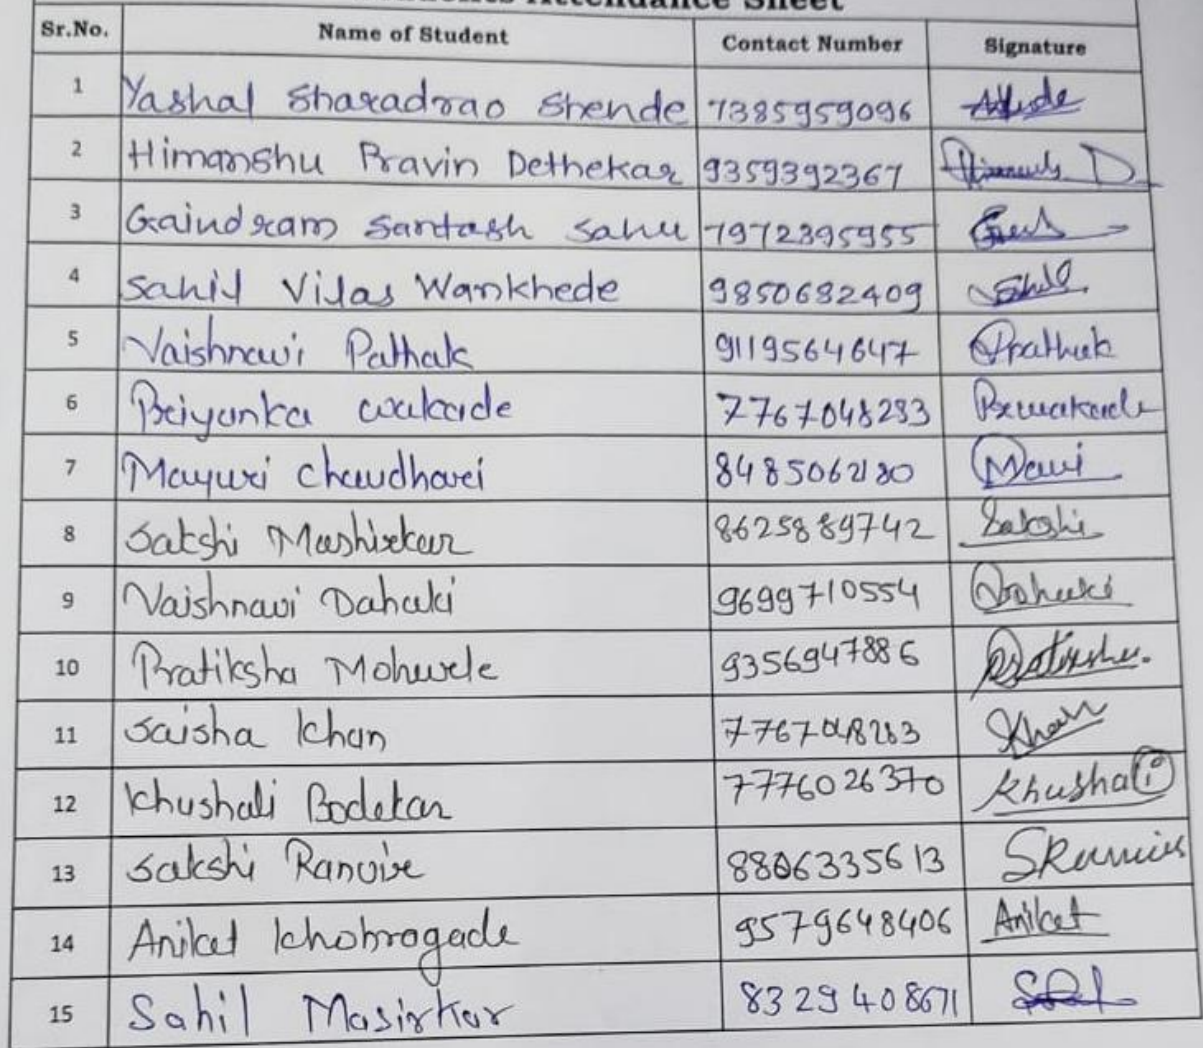 Students Attendance Sheet
Sr.No. Name of Student Contact Number Signature
1 Yashal Sharadrao Shende 7385959096
2 Himanshu Pravin Dethekar 9359392367
3 Gaindram Santash Sahu 7972395955
4 Sahil Vilas Wankhede 9850682409
5 Vaishnavi Pathak 9119564647 Pathak
6 Priyanka Wakade 7767048293
7 Mayuri Chaudhari 8485062180
8 Sakshi Mashirkar 8625889742 Sakshi
9 Vaishnavi Dahaki 9699710554 Dahaki
10 Pratiksha Mohurle 9356947886
11 Saisha Khan 7767048283 Khan
12 Khushali Bodekar 7776026370 Khushali
13 Sakshi Ranvire 8806335613
14 Aniket Khobragade 9579648406 Aniket
15 Sahil Masirkar 8329408671